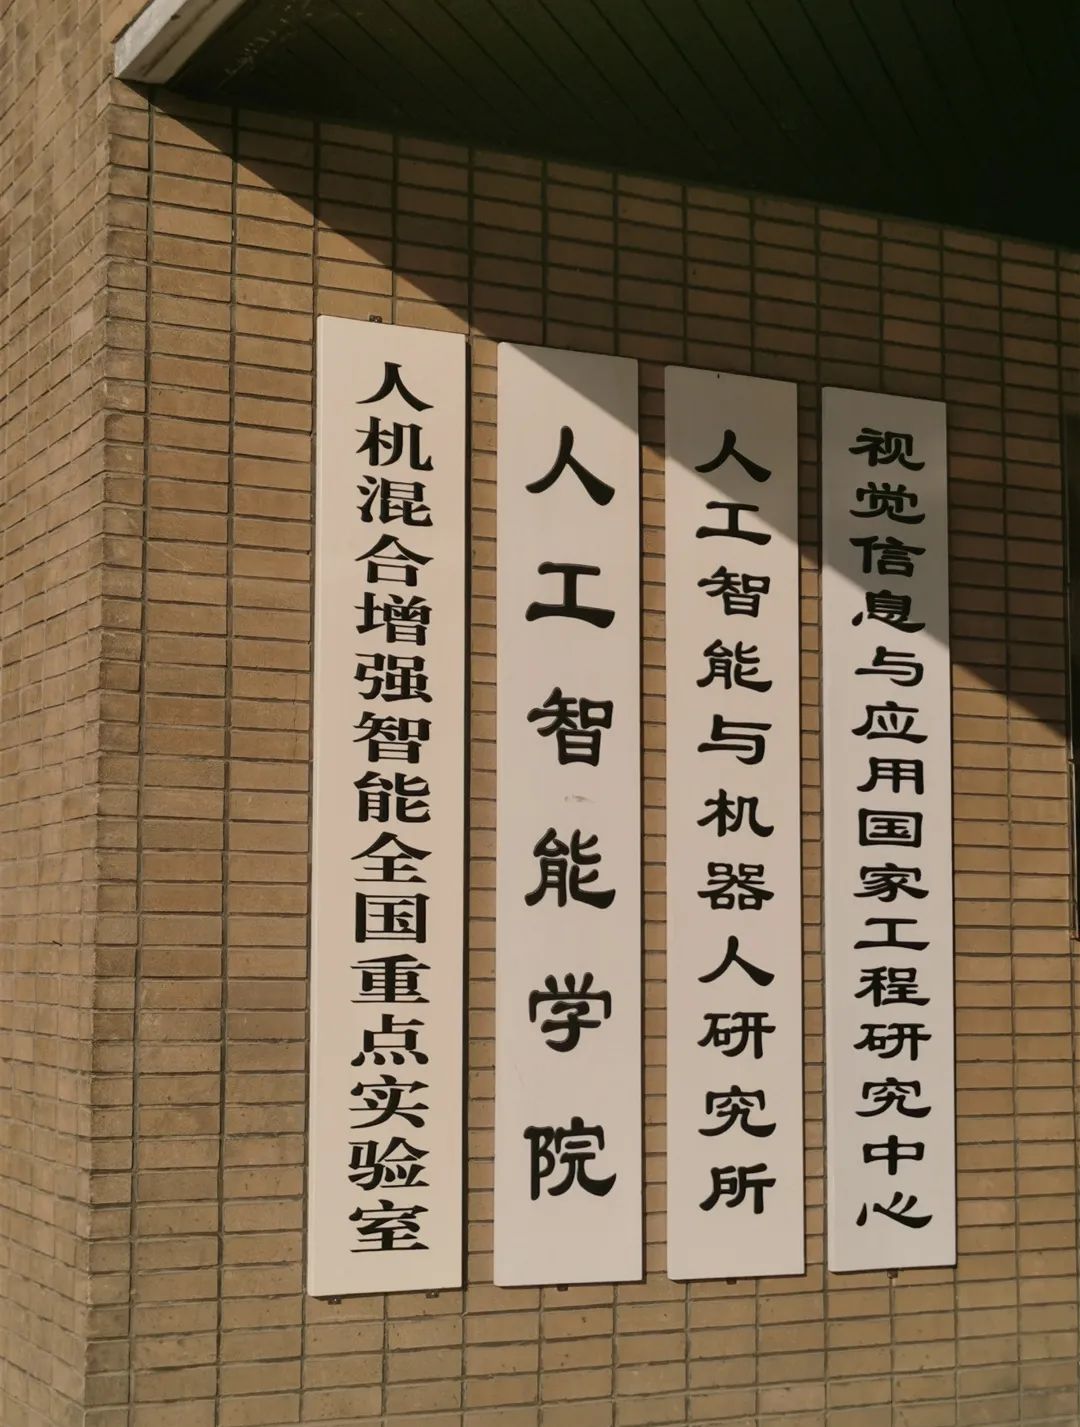 人机混合增强智能全国重点实验室
人工智能学院
人工智能与机器人研究所
视觉信息与应用国家工程研究中心